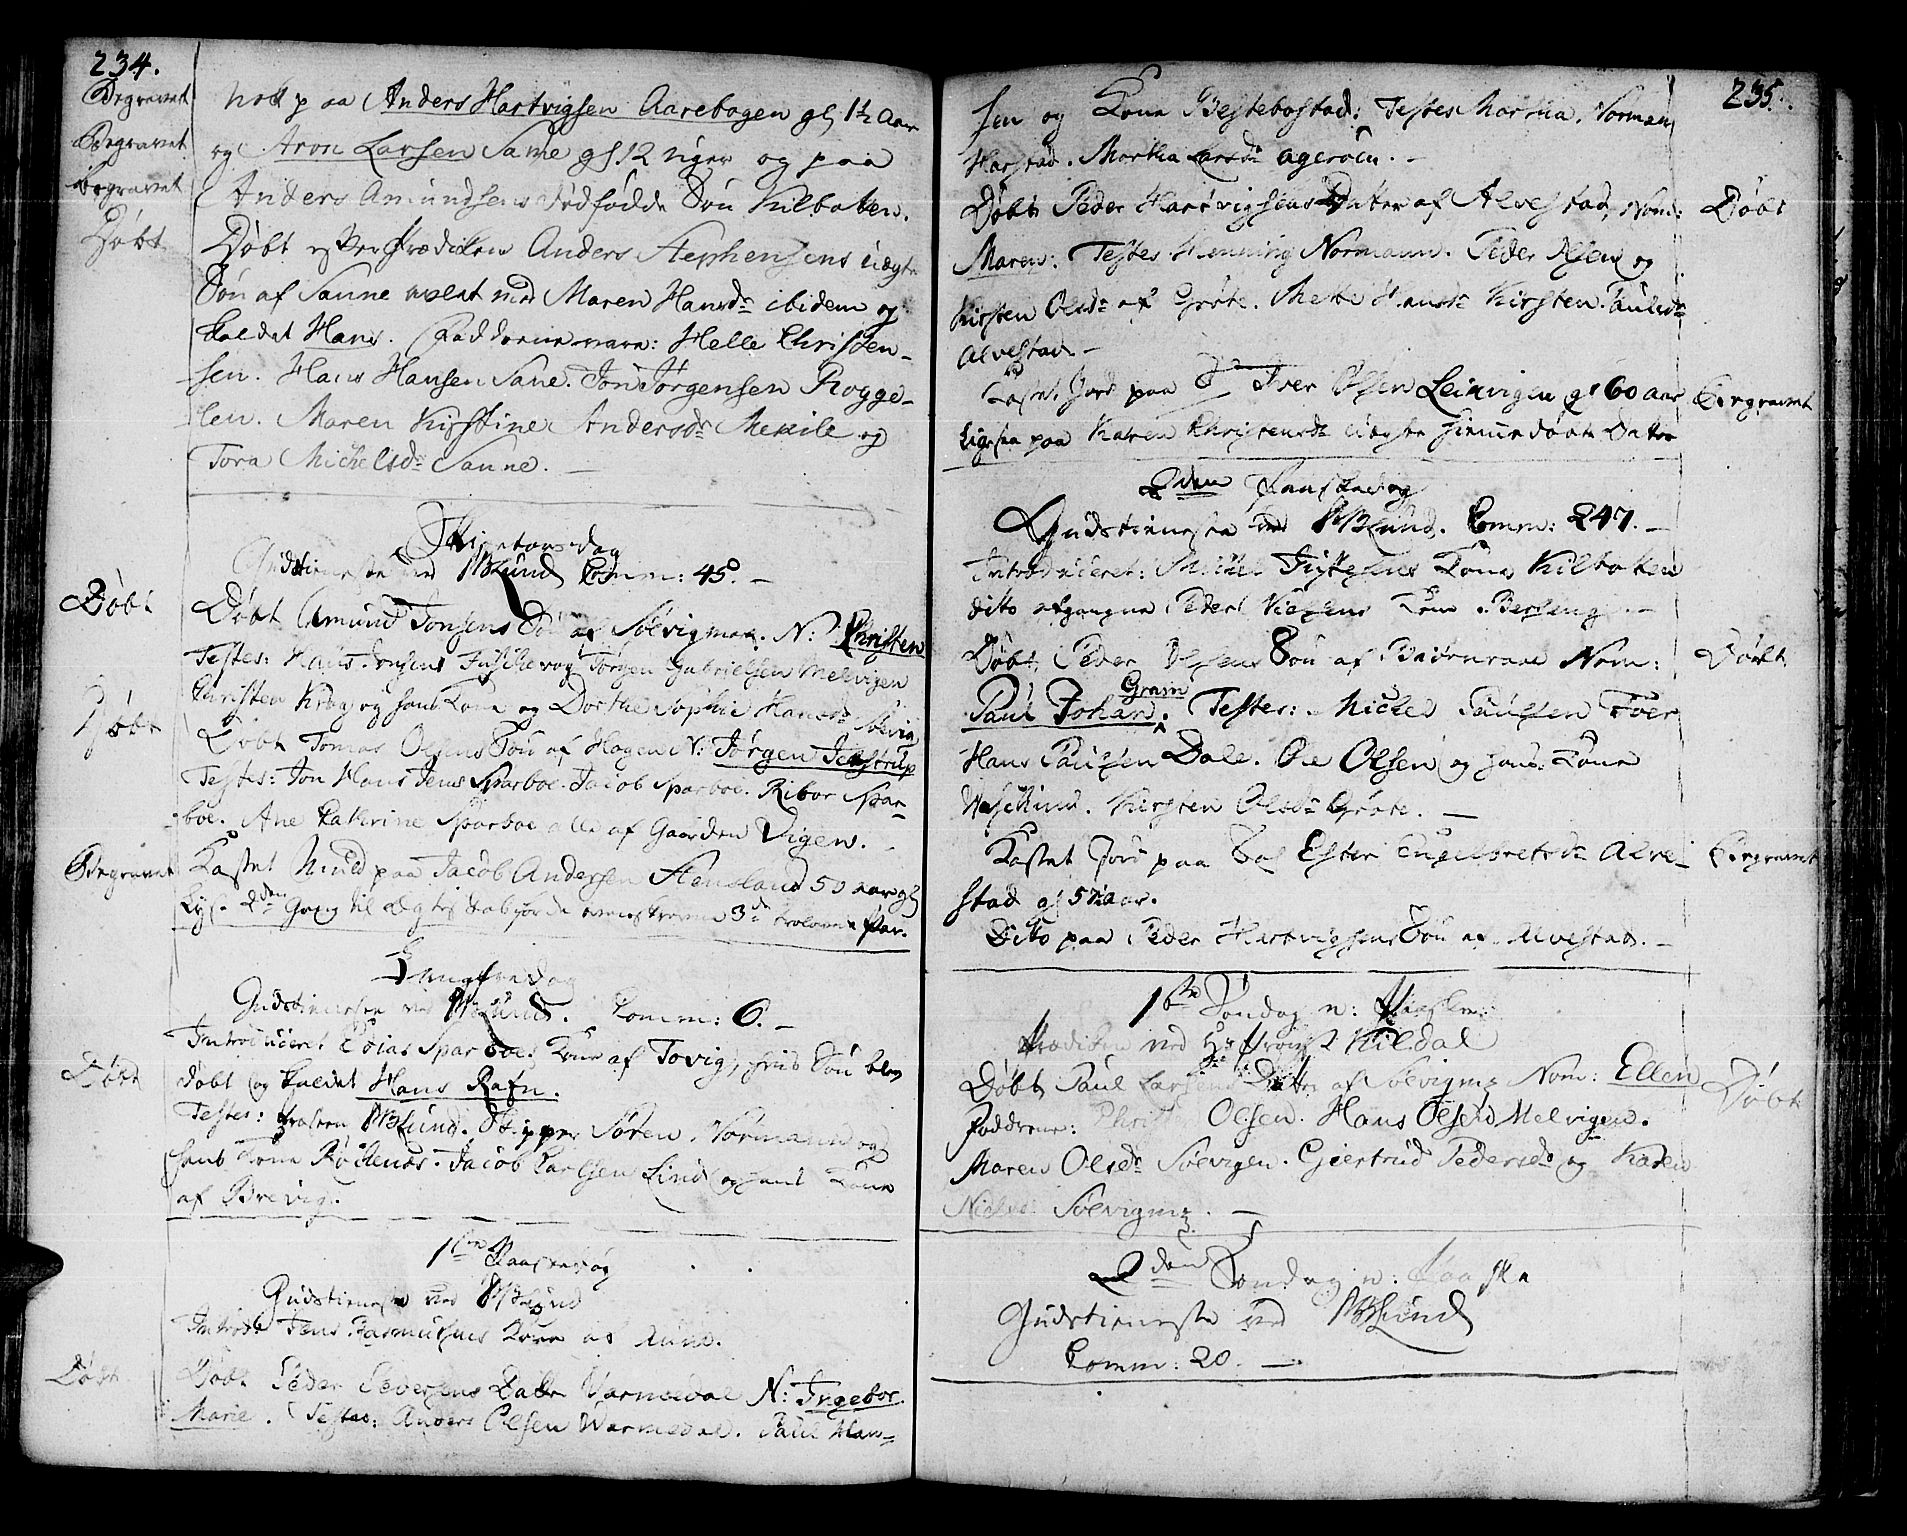 234.
Begravet
Begravet
Begravet
Døbt
holt paa Anders Hartvigsen Aarebogen gl 1½ Aar
og Aron Larsen Sane gl 12 uger og paa
Anders Amundsens dødfødde Søn Kilboten.
Døbt efter Prædiken Anders Stephensens uægte
Søn af Sanne avlet med Maren Hansdr ibidem og
kaldet Hans. Faddernes navn: Helle Christen-
sen. Hans Hansen Sane. Jon Jørgensen Rogge-
len. Maren Kirstine Andersdr Mekile og
Tora Michelsdr Sanne.
Skiertorsdag
Gudstieneste ved Lund Comm: 45.
Døbt
Døbt Amund Jonsens Søn af Sølvigmar. N: Christen
Testes: Hans Jonsens Fuskevog Jørgen Gabrielsen Melvigen
Christen Krog og hans Kone og Dorthe Sophie Hansdr Sølvig
Døbt
Døbt Tomas Olsens Søn af Hagen N: Jørgen Jenstrup
Testes: Jon Hans Jens Sparboe. Jacob Sparboe. Ribor Spar-
boe. Ane Catrine Sparboe alle af Gaarden Vigen.
Begravet
Kastet Muld paa Jacob Andersen Stensland 50 aar gl
Lys. 2den Gang til Ægteskab 3de trolovede Par.
Langfredag
Gudstienesten ved Lund. Comm: 6.
Døbt
Introduceret Eoias Sparboes Kone af Tovig, hvis Søn blev
døbt og kaldet Hans Rafn.
Testes: Lund. Skipper Søren Normann og
hans Kone Røkenæs. Jacob Carlsen Lind og hans Kone
af Brevig.
1ste Paaskedag
Gudstieneste ved Lund
Introd: Jens Rasmusens Kone af Aune.
Døbt
Døbt Peder Seversens Datter Varmedal N: Ingebor
Marie. Testes: Anders Olsen Warmedal. Paul Han-
235.
sen og Kone Bestebostad. Testes Martha Norman
Harstad. Martha Larsdr Agerøen.
Døbt
Døbt Peder Hartvigsens Datter af Alvestad, Nom:
Maren: Testes Henning Normann. Peder Olsen og
Kirsten Olsdr af Grøte. Mette Hansdr Kirsten Paulsdr
Alvestad
Begravet
Kastet Jord paa Iver Olsen Leikvigen gl 60 aar
Ligesaa paa Karen Christensdr uægte Datter
2den Paaskedag
Gudstieneste ved Lund. Comm: 247.
Introduceret: Michel Kone Kilboten
dito Peder Nielsens Kone Berseng.
Døbt
Døbt Peder Olsens Søn af Nom:
Paul Johan Gram. Testes: Michel Paulsen
Hans Paulsen Dale. Ole Olsen og hans Kone
Kirsten Olsdr Grøte.
Begravet
Kastet Jord paa Ester Engelbretsdr Alve-
stad gl 57 aar.
Dito paa Peder Hartvigsens Søn af Alvestad.
1ste Søndag n: Paaske
Prædiken ved Hr Provst Kildal
Døbt
Døbt Paul Larsens Datter af Sølvigmr Nom: Ellen
Faddrene: Olsen. Hans Olsen Melvigen.
Maren Olsdr Sølvigen. Giertrud Pedersdr og Karen
Nielsdr Sølvigmr.
2den Søndag n: Paaske
Gudstieneste ved Lund
Comm: 20.